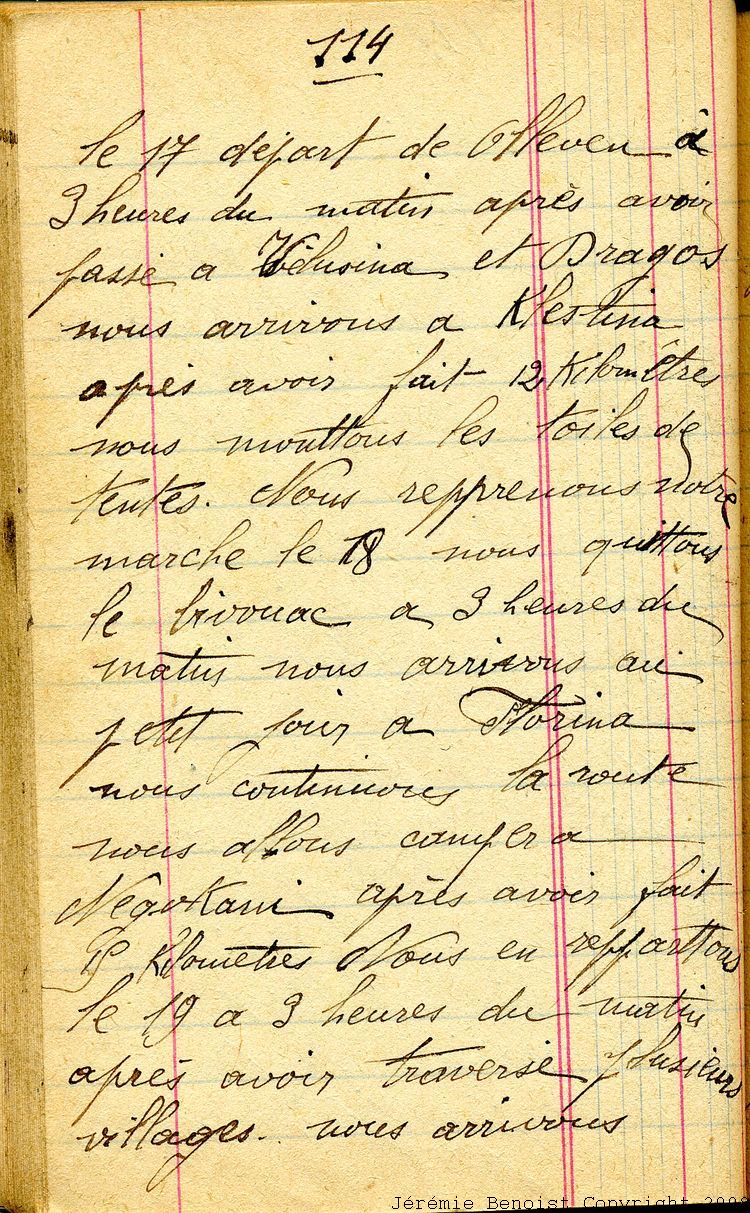 114
le 17 départ de Olleven à
3 heures du matin après avoir
passé a et Dragos
nous arrivons a Klestina
après avoir fait 12 Kilomêtres
nous monttons les toiles de
tentes. Nous repprenons notre
marche le 18 nous quittons
le bivouac a 3 heures du
matin nous arrivons au
petit jour a Florina
nous continuons la route
nous allons camper a
Négokani après avoir fait
Kilomètres Nous en repparttons
le 19 a 3 heures du matin
après avoir traversé plusieurs
villages. nous arrivons
Jérémie Benoist Copyright